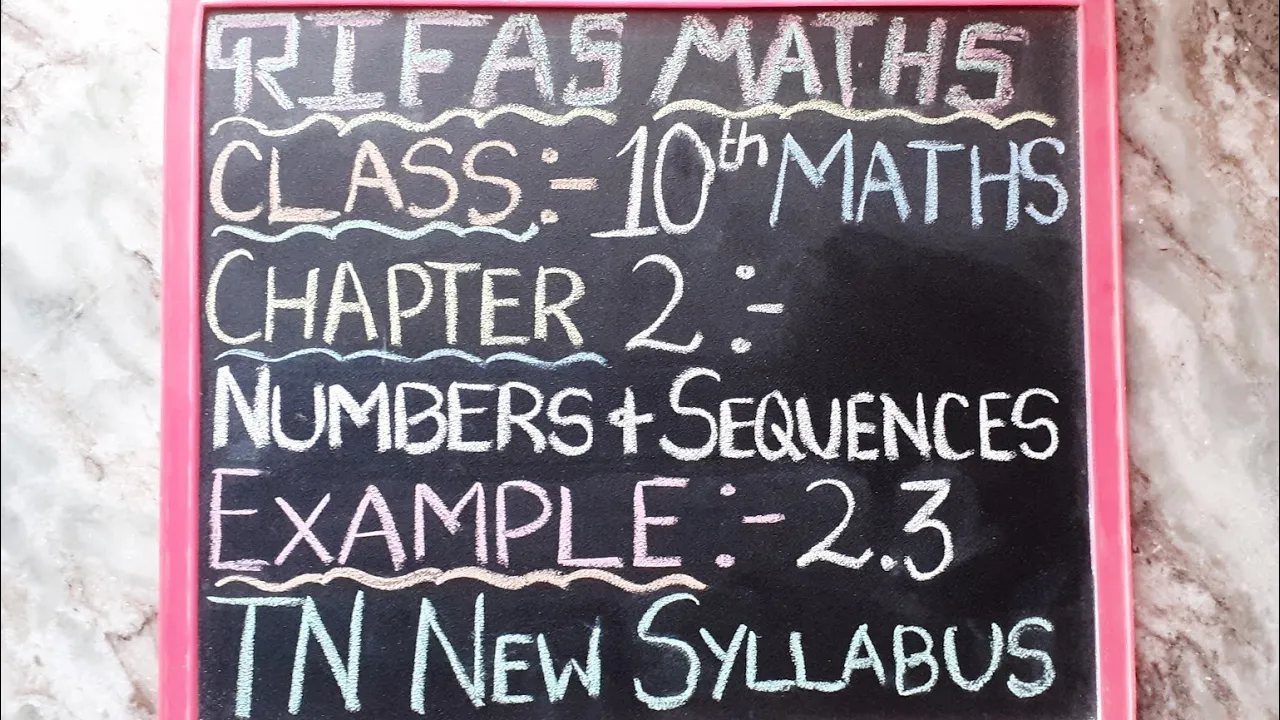 RIFAS MATHS
CLASS:- 10th MATHS
CHAPTER 2:-
NUMBERS & SEQUENCES
EXAMPLE:- 2.3
TN NEW SYLLABUS